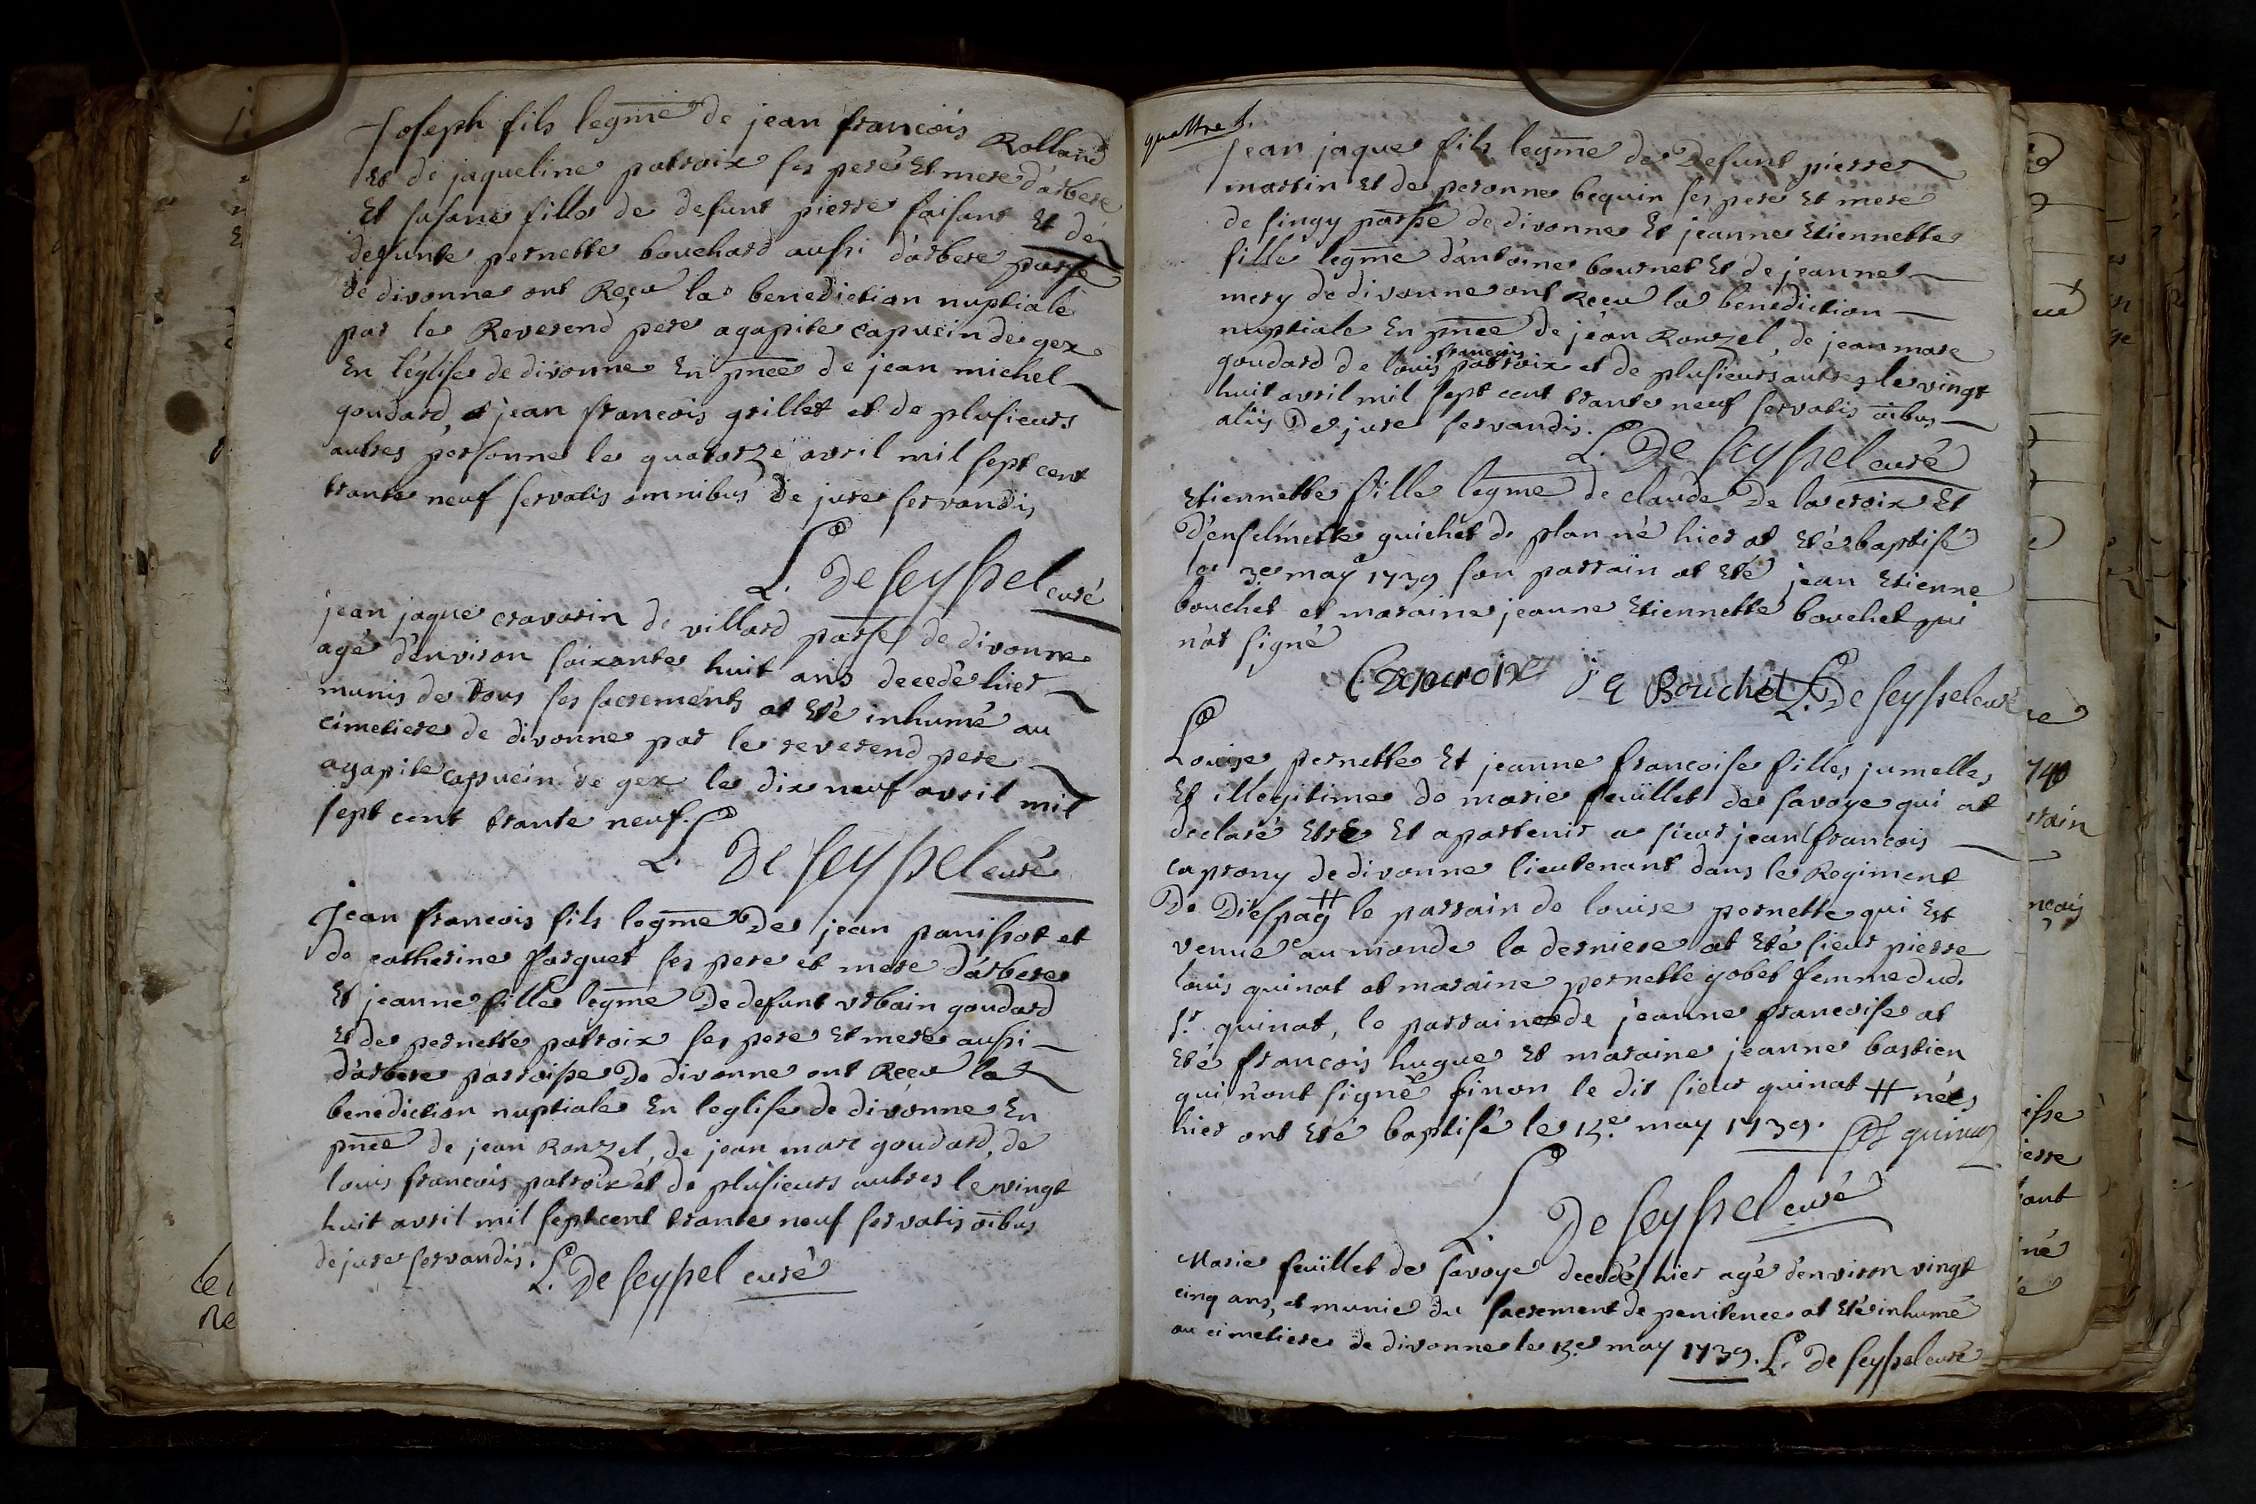 Joseph fils legme de jean francois Rolland
Et de jaqueline patroix ses pere Et mere d'arbere
Et susane fille de defunt pierre faisant Et de
defunte pernette bouchard aussi d'arbere parsse
de divonne ont Reçu la benediction nuptiale
par le Reverend pere agapite capucin de gex
En l'eglise de divonne En pnce de jean michel
goudard, jean francois grillet et de plusieurs
autres personne le quatorze avril mil sept cent
trante neuf servatis omnibus de jure servandis
L. De seyssel curé
jean jaque cravarin de villard parsse de divonne
agé d'environ soixante huit ans decedé hier
munis de tous ses sacrements at Eté inhumé au
cimetiere de divonne par le reverend pere
agapite capucin de gex le dix neuf avril mil
sept cent trante neuf.
L. De seyssel curé
Jean francois fils legme De jean panissot et
de catherine parquet ses pere et mere d'arbere
Et jeanne fille legme De defunt urbain goudard
Et de pernette patroix ses pere Et mere aussi
d'arbere parroisse De divonne ont Reçu la
benediction nuptiale En l'eglise de divonne En
pnce de jean Ronzel, de jean marc goudard, de
louis francois patroix et de plusieurs autres le vingt
huit avril mil sept cent trante neuf servatis oibus
de jure servandis.
L. De seyssel curé
quattre f.
Jean jaque fils legme de Defunt pierre
martin Et de peronne bequin ses pere Et mere
de singy parsse de divonne Et jeanne Etiennette
fille legme d'antoine bournet Et de jeanne
mery de divonne ont Reçu la benediction
nuptiale En pnce de jean Ronzel, de jean marc
goudard de louis francois patroix et de plusieurs autres le vingt
huit avril mil sept cent trante neuf servatis oibus
aliis De jure servandis.
L. De seyssel curé
Etiennette fille legme de claude De lacroix Et
d'enselmette guichet de plan né hier at Eté baptisé
le 3e may 1739 son parrain at Eté jean Etienne
bouchet et maraine jeanne Etiennette bouchet qui
n'at signé
C Delacroix j E Bouchet L. De seyssel curé
Louise pernette Et jeanne francoise filles jumelles
Et illegitime de marie feuillet de savoye qui at
declaré Etre Et apartenir a sieur jean francois
caprony de divonne lieutenant dans le Regiment
De Diespag # le parrain de louise pernette qui Est
venue au monde la derniere at Eté sieur pierre
louis quinat et maraine pernette gobet femme dud.
sr. quinat, le parrain de jeanne francoise at
Eté francois hugue Et maraine jeanne bastien
qui n'ont signé sinon le dit sieur quinat # nées
hier ont Eté baptisé le 13.e may 1739. quinat
L. De seyssel curé
Marie feuillet de savoye decedé hier agé d'environ vingt
cinq ans, et munie du sacrement de penitence at Eté inhumé
au cimetiere de divonne le 13.e may 1739. L. De seyssel curé